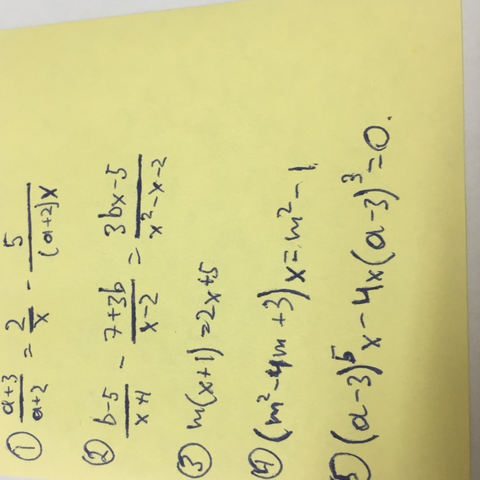 ① (a+3)/(a+2) = 2/x - 5/((a+2)x)
② (b-5)/(x+1) - (7+3b)/(x-2) = (3bx-5)/(x²-x-2)
③ m(x+1)=2x+5
④ (m²-4m+3)x=m²-1
⑤ (a-3)⁵x-4x(a-3)³=0.